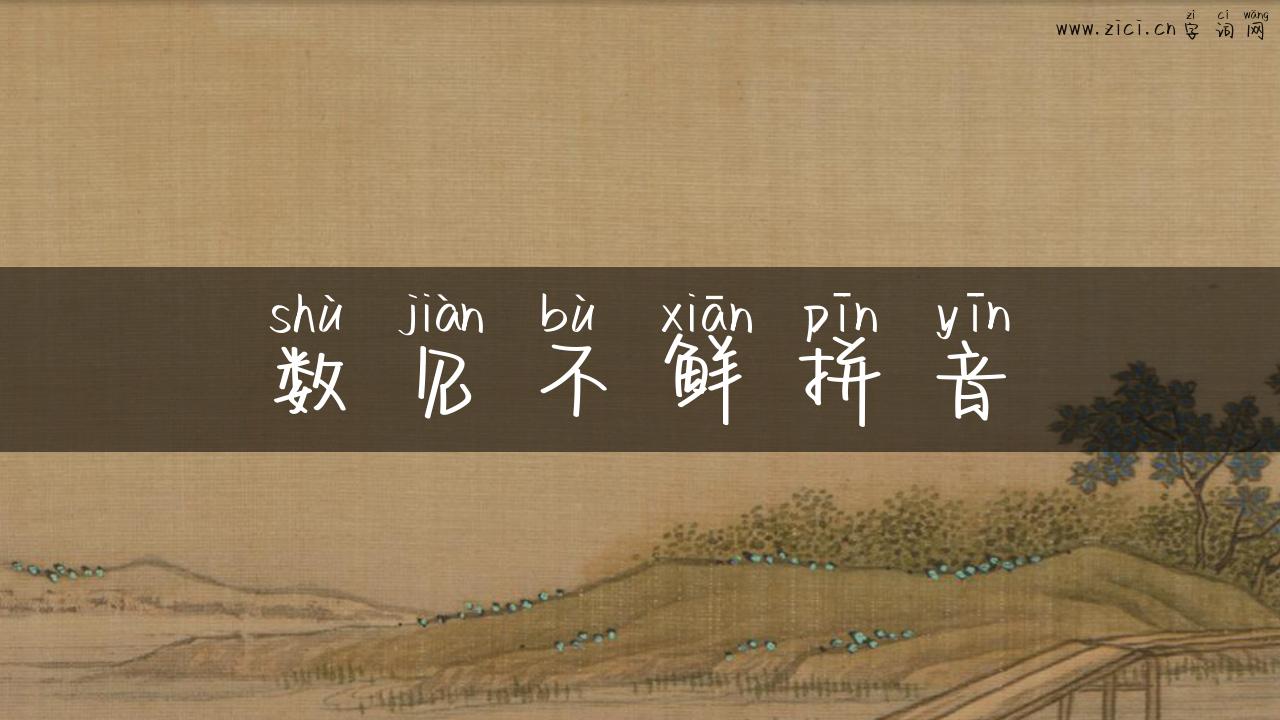 zì cí wǎng
www.zici.cn字词网
shù jiàn bù xiān pīn yīn
数见不鲜拼音